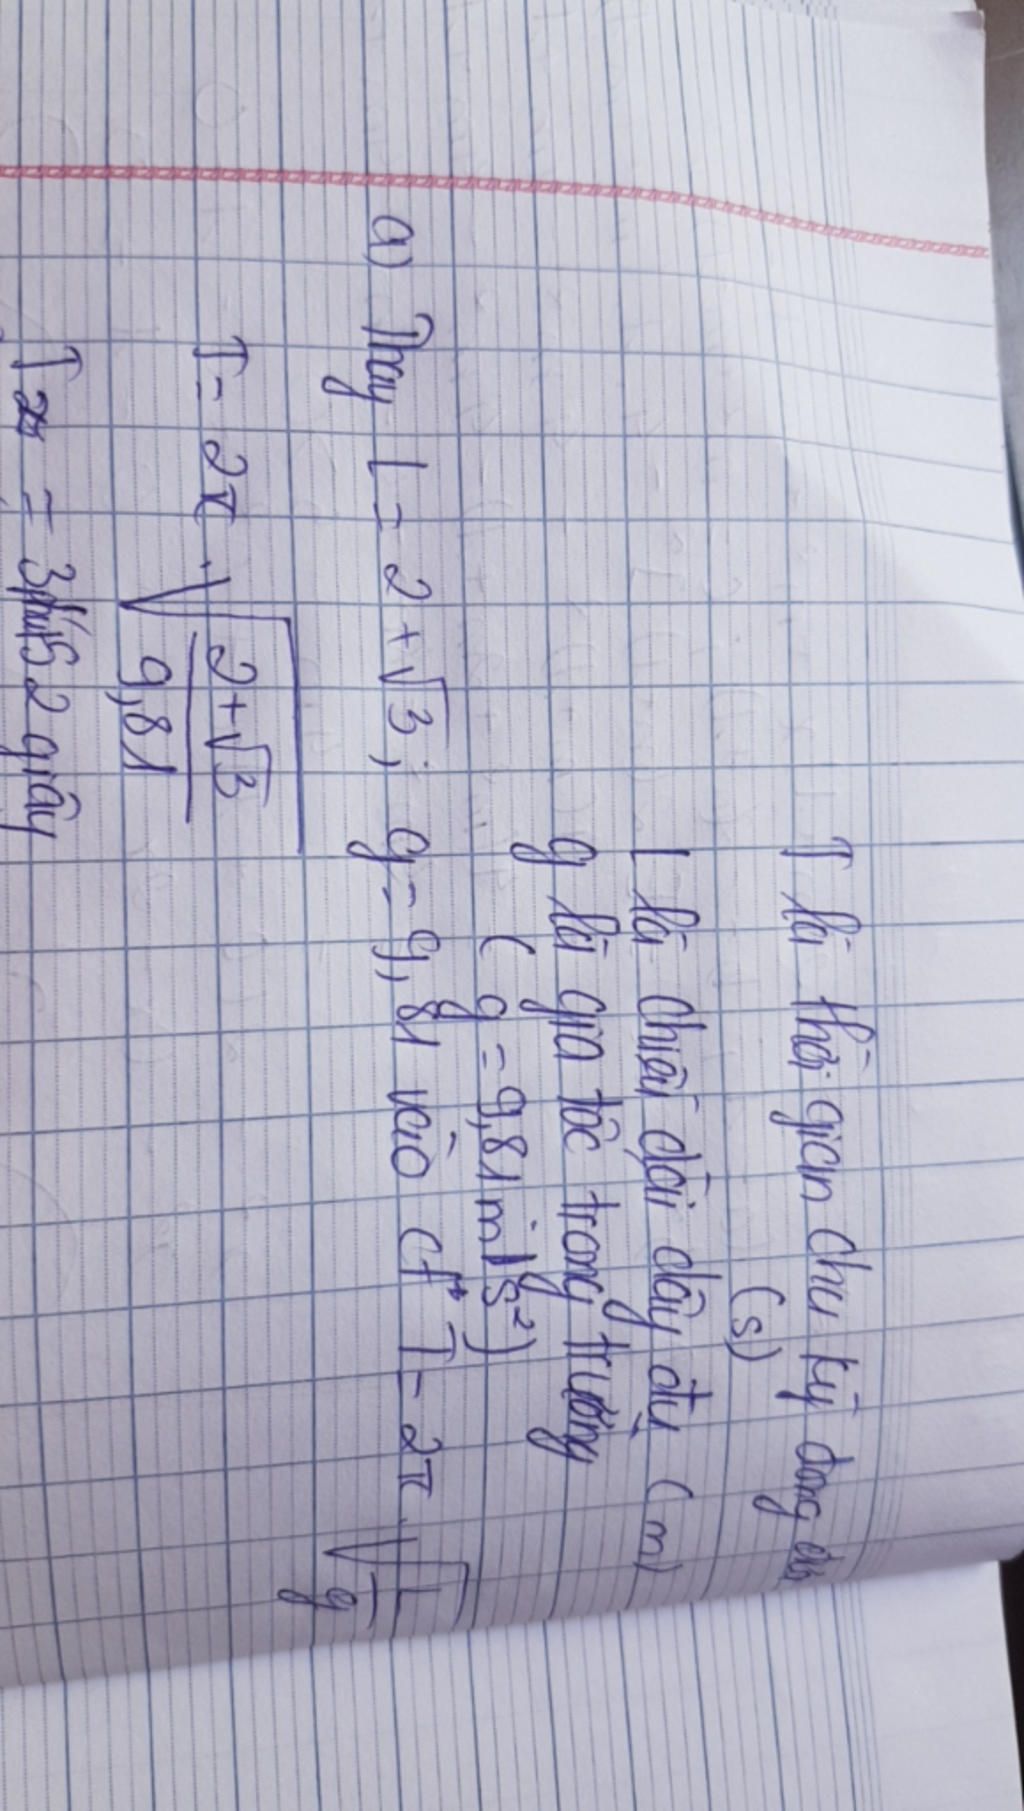 T là thời gian chu kỳ dong đưa
(s)
L là chiều dài dây đu (m)
g là gia tốc trọng trường
(g = 9,81 m/s²)
a) Thay L = 2 + √3 ; g = 9,81 vào ct T = 2π . √(L/g)
T = 2π . √((2 + √3)/9,81)
T = 3 giây